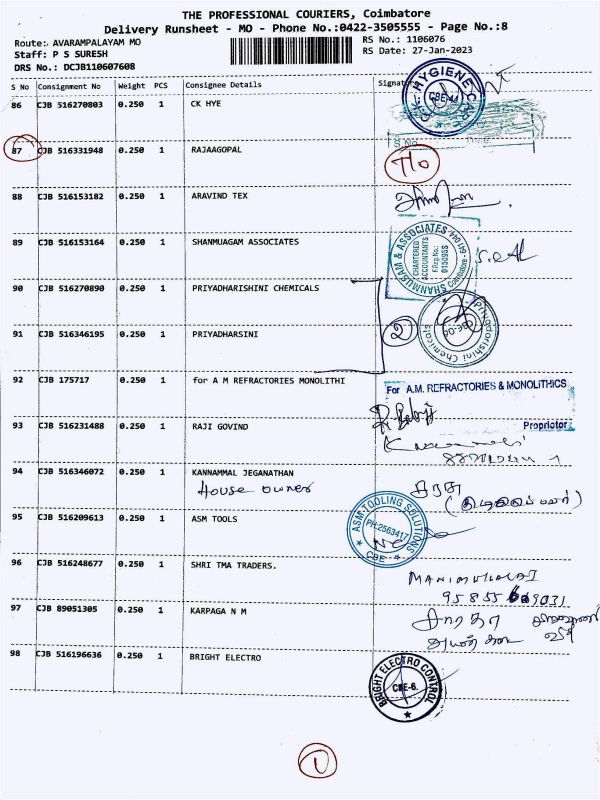 THE PROFESSIONAL COURIERS, Coimbatore
Delivery Runsheet - MO - Phone No.:0422-3505555 - Page No.:8
Route: AVARAMPALAYAM MO
RS No.: 1106076
Staff: P S SURESH
RS Date: 27-Jan-2023
DRS No.: DCJB110607608
S No Consignment No Weight PCS Consignee Details
86 CJB 516270803 0.250 1 CK HYE
HYGIENE
CBE-14
87 CJB 516331948 0.250 1 RAJAAGOPAL
S.No
88 CJB 516153182 0.250 1 ARAVIND TEX
89 CJB 516153164 0.250 1 SHANMUAGAM ASSOCIATES
SHANMUGAM & ASSOCIATES
CHARTERED
ACCOUNTANTS
90 CJB 516270890 0.250 1 PRIYADHARISHINI CHEMICALS
91 CJB 516346195 0.250 1 PRIYADHARSINI
2
Priyadarishini Chemicals
92 CJB 175717 0.250 1 for A M REFRACTORIES MONOLITHI
For A.M. REFRACTORIES & MONOLITHICS
Proprietor
93 CJB 516231488 0.250 1 RAJI GOVIND
94 CJB 516346072 0.250 1 KANNAMMAL JEGANATHAN
House owner
95 CJB 516209613 0.250 1 ASM TOOLS
ASM TOOLING SOLUTIONS
PH:2563417
CBE
96 CJB 516248677 0.250 1 SHRI TMA TRADERS.
97 CJB 89051305 0.250 1 KARPAGA N M
சாரதா
98 CJB 516196636 0.250 1 BRIGHT ELECTRO
BRIGHT ELECTRO CONTROL
CBE-6.
1